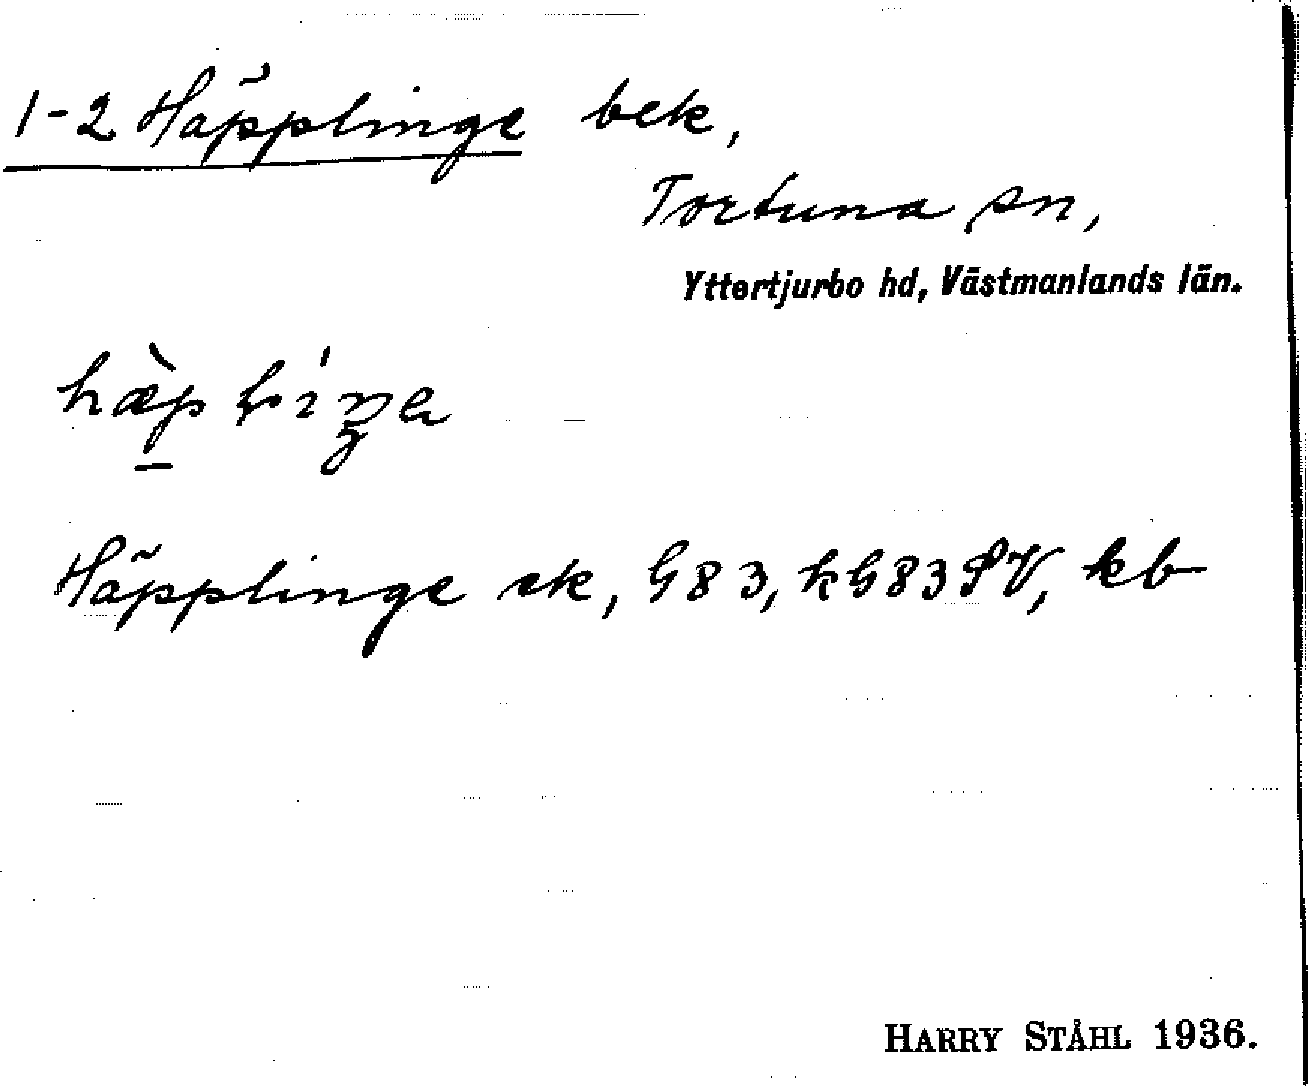 1-2 Häpplinge bek,
Tortuna sn,
Yttertjurbo hd, Västmanlands län.
Häpplinge ek, G83, kG83SV, kb
HARRY STÅHL 1936.